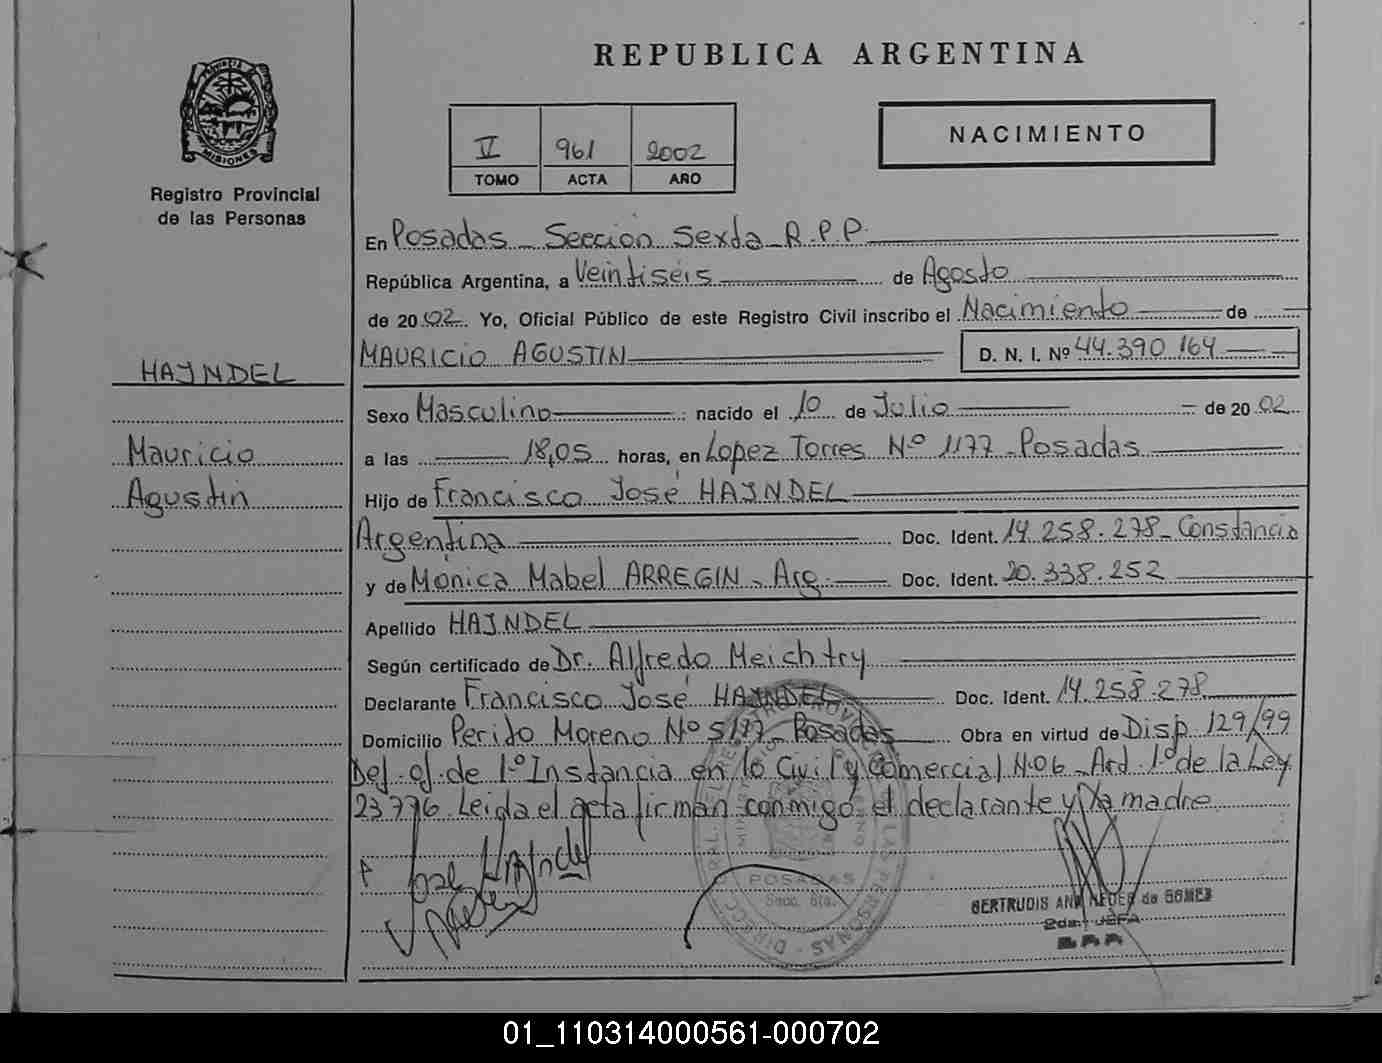 REPUBLICA ARGENTINA
PROVINCIA
MISIONES
Registro Provincial
de las Personas
V 961 2002
TOMO ACTA AÑO
NACIMIENTO
En Posadas - Sección Sexta - R.P.P.
República Argentina, a Veintiseis de Agosto
de 2002. Yo, Oficial Público de este Registro Civil inscribo el Nacimiento de
MAURICIO AGUSTIN D. N. I. Nº 44.390.164
HAJNDEL
Sexo Masculino nacido el 10 de Julio de 2002
Mauricio
a las 18,05 horas, en Lopez Torres Nº 1177 - Posadas
Agustin
Hijo de Francisco José HAJNDEL
Argentina Doc. Ident. 14.258.278 - Constancia
y de Mónica Mabel ARREGIN - Arg. Doc. Ident. 20.338.252
Apellido HAJNDEL
Según certificado de Dr. Alfredo Meichtry
Declarante Francisco José HAJNDEL Doc. Ident. 14.258.278
Domicilio Perito Moreno Nº 5177 - Posadas Obra en virtud de Disp. 129/99
Def. of. de 1º Instancia en lo Civil y Comercial Nº 6 - Art. 1º de la Ley
23.776. Leida el acta firman conmigo, el declarante y la madre
POSADAS
Secc. 6ta.
GERTRUDIS ANA de GOMEZ
2da. JEFA
R.P.P.
01_110314000561-000702